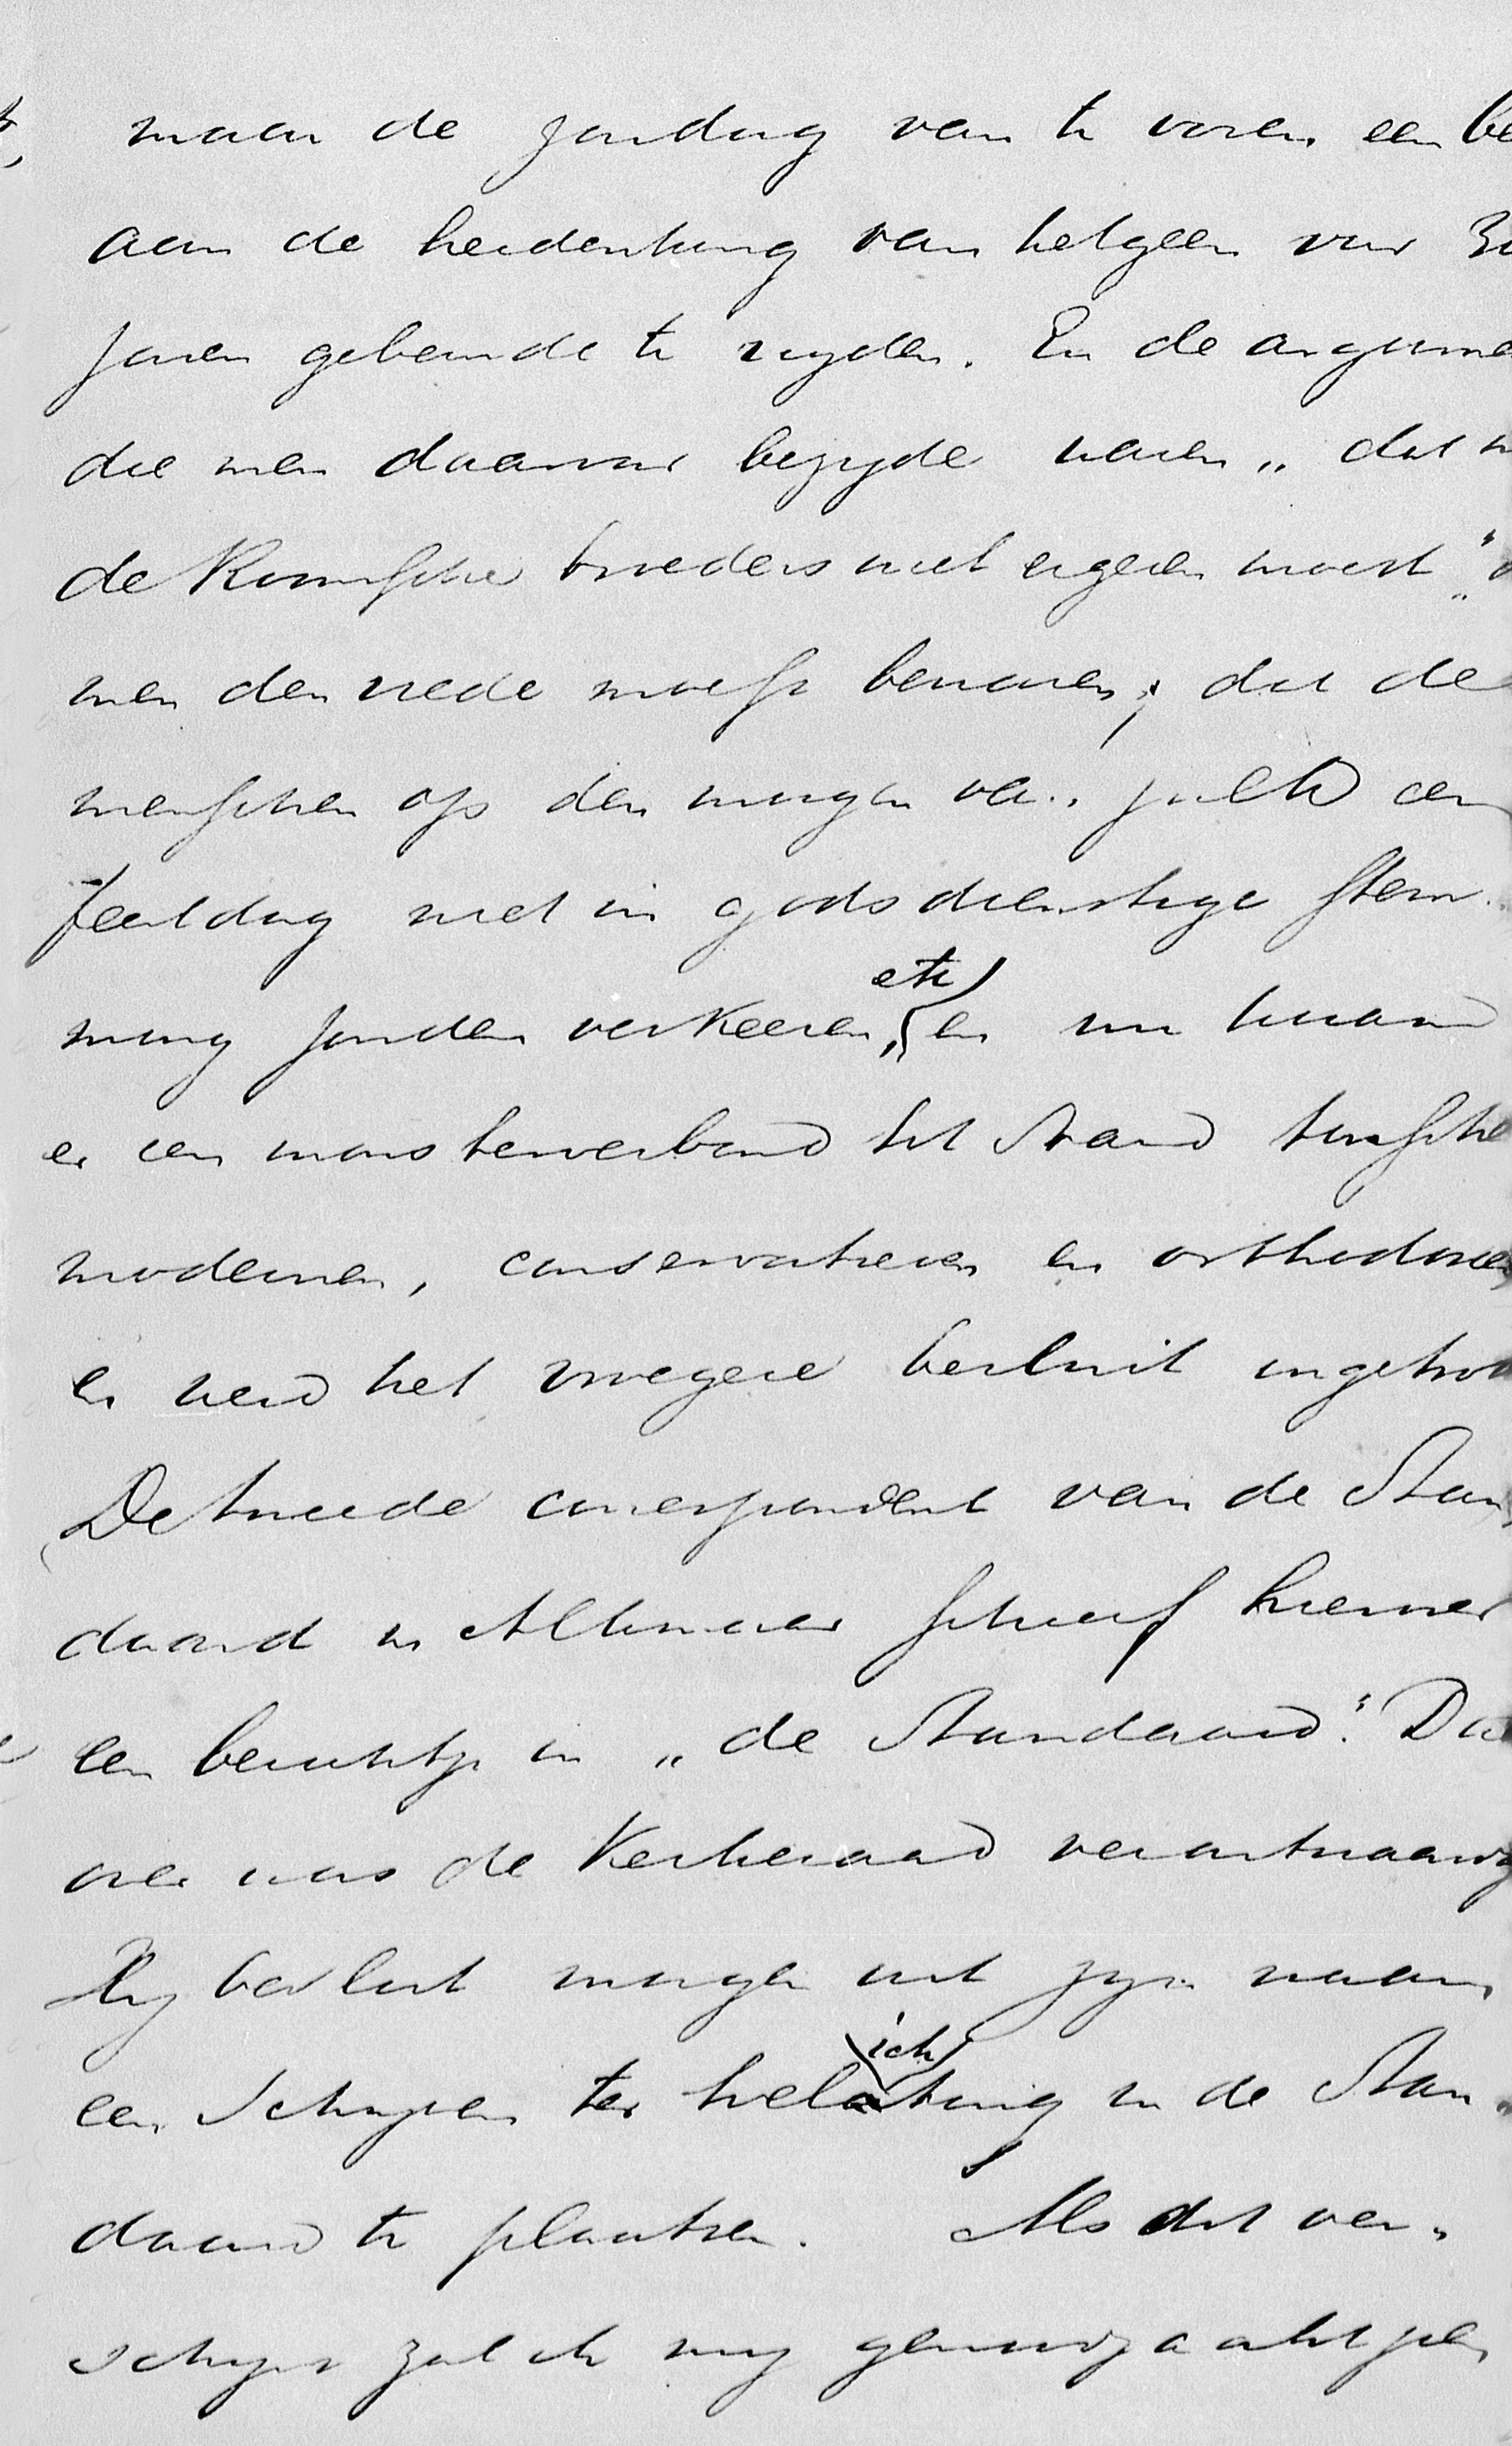 maar de zondag van te voren een be
aan de herdenking van hetgeen voor 30
jaren gebeurde te wyden. En de argume
die men daarvoor bezigde waren „dat m
de Roomsche broeders niet ergeren moest", „d
men den vrede moest bewaren, dat de
menschen op den morgen van zulk een
feestdag niet in godsdienstige stem-
ming zouden verkeeren, etc en nu kwam
er een monsterverbond tot stand tussche
modernen, conservatieven en orthodoxen
en werd het vroegere besluit ingetrok
De tweede correspondent van de Stan
daard in Alkmaar schreef hierover
een berichtje in „de Standaard". Da
over was de Kerkeraad verontwaardig
Hy besluit morgen uit zyn naam
een schryven ter toelichting in de Stan-
daard te plaatsen. Als dit ver-
schynt zal ik my genoodzaakt zien